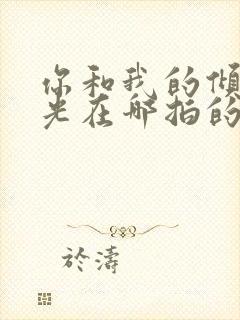 你和我的倾
光在哪拍的
於濤